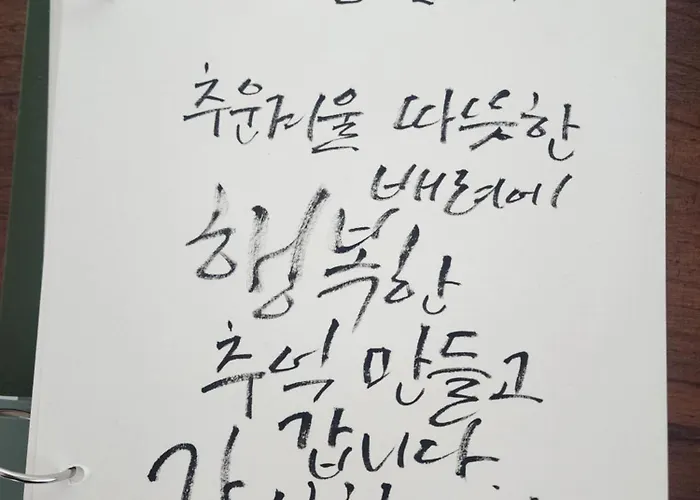 추운겨울 따뜻한
배려에
행복한
추억 만들고
갑니다.